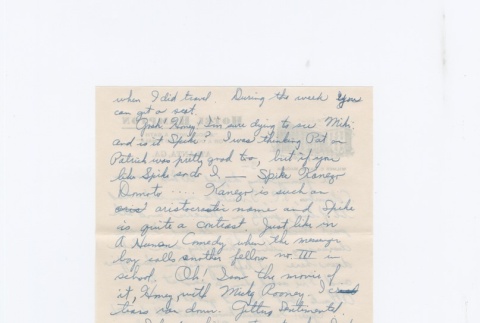 when I did travel. During the week you
can get a seat.
Gosh Honey I'm sure dying to see Miki
and is it Spike? I was thinking Pat or
Patrick was pretty good too, but if you
like Spike so do I, — Spike Kanezo
Domoto .... Kanezo is such an
aristocratic name and Spike
is quite a contrast. Just like in
A Human Comedy when the messenger
boy calls another fellow no. III in
school. Oh! I saw the movie of
it, Honey, with Micky Rooney. I
tears ran down. Getting Sentimental.